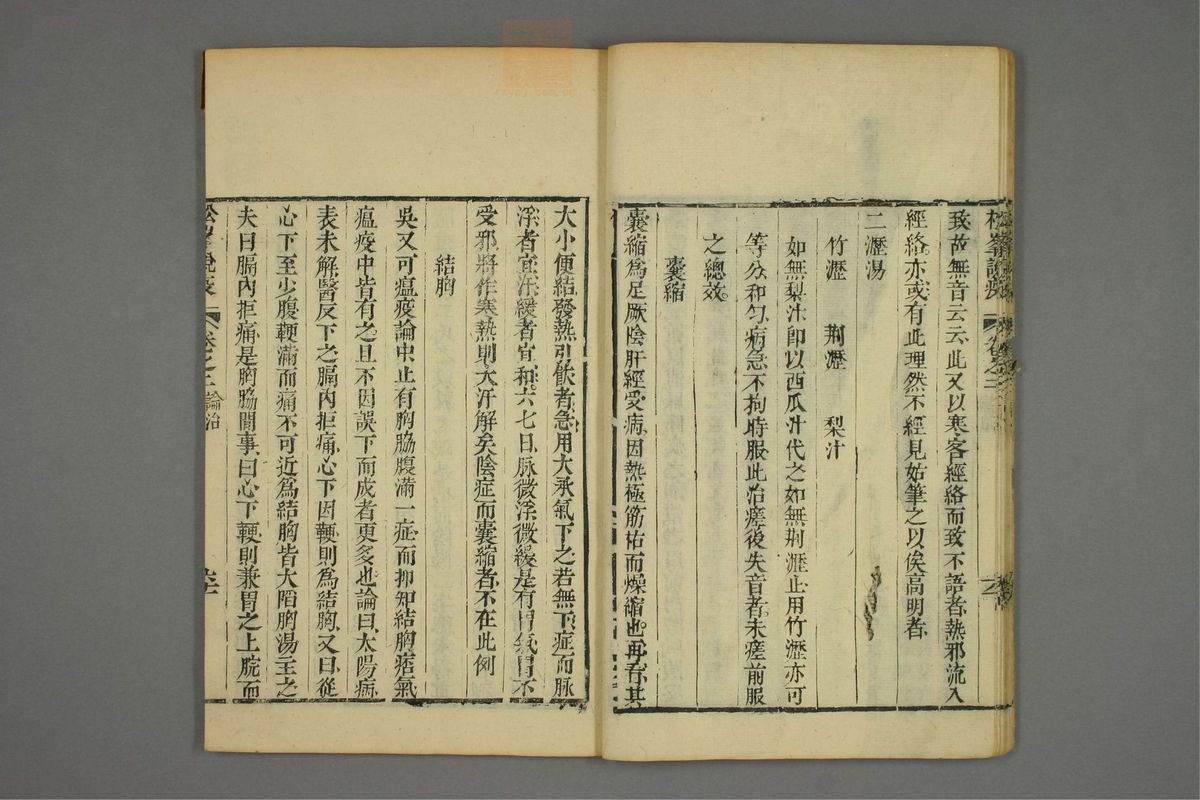 致故無音云云此又以寒客經絡而致不語者熱邪流入
經絡亦或有此理然不經見姑筆之以俟高明者
二瀝湯
竹瀝 荆瀝 梨汁
如無梨汁卽以西瓜汁代之如無荆瀝止用竹瀝亦可
等分和勻病急不拘時服此治瘥後失音者未瘥前服
之總效
囊縮
囊縮爲足厥陰肝經受病因熱極筋枯而燥縮也再看其
大小便結發熱引飲者急用大承氣下之若無下症而脉
浮者宜汗緩者宜和六七日脉微浮微緩是有胃氣胃不
受邪將作寒熱則大汗解矣陰症而囊縮者不在此例
結胸
吳又可瘟疫論中止有胸脇腹滿一症而抑知結胸痞氣
瘟疫中皆有之且不因誤下而成者更多也論曰太陽病
表未解醫反下之膈內拒痛心下因鞕則爲結胸又曰從
心下至少腹鞕滿而痛不可近爲結胸皆大陷胸湯主之
夫曰膈內拒痛是胸脇間事曰心下鞕則兼胃之上脘而
松峯說疫 卷之二 論治